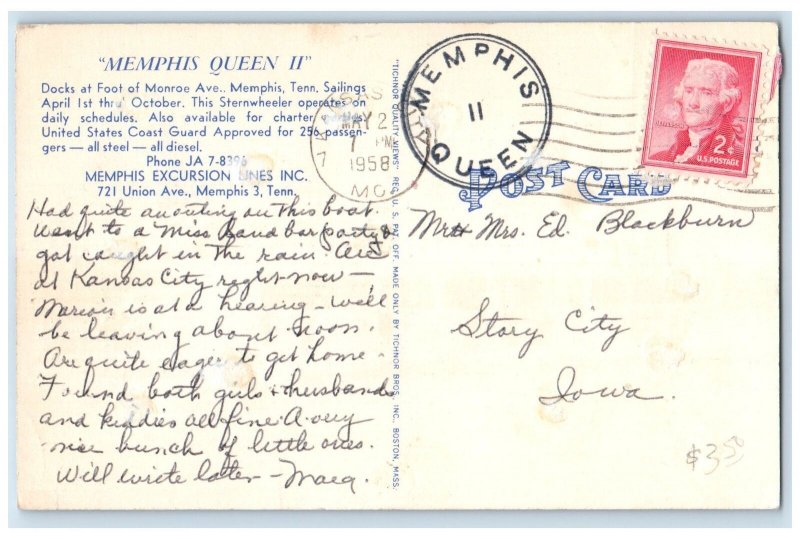 "MEMPHIS QUEEN II"
Docks at Foot of Monroe Ave., Memphis, Tenn. Sailings
April 1st thru October. This Sternwheeler operates on
daily schedules. Also available for charter
United States Coast Guard Approved for 256 passen-
gers — all steel — all diesel.
Phone JA 7-8396
MEMPHIS EXCURSION LINES INC.
721 Union Ave., Memphis 3, Tenn.
Had quite an outing on this boat.
Went to a Miss. Sand bar party &
got caught in the rain. Are
at Kansas City right now —
Marion is at a hearing - we'll
be leaving about noon.
Are quite eager to get home -
Found both girls & husbands
and kiddies all fine. A very
nice bunch of little ones.
Will write later - Marg.
"TICHNOR QUALITY VIEWS" REG. U. S. PAT. OFF. MADE ONLY BY TICHNOR BROS., INC., BOSTON, MASS.
MAY 2
7 PM
1958
MO.
MEMPHIS
II
QUEEN
2¢
U.S. POSTAGE
POST CARD
Mr & Mrs. Ed. Blackburn
Story City
Iowa.
$3.50